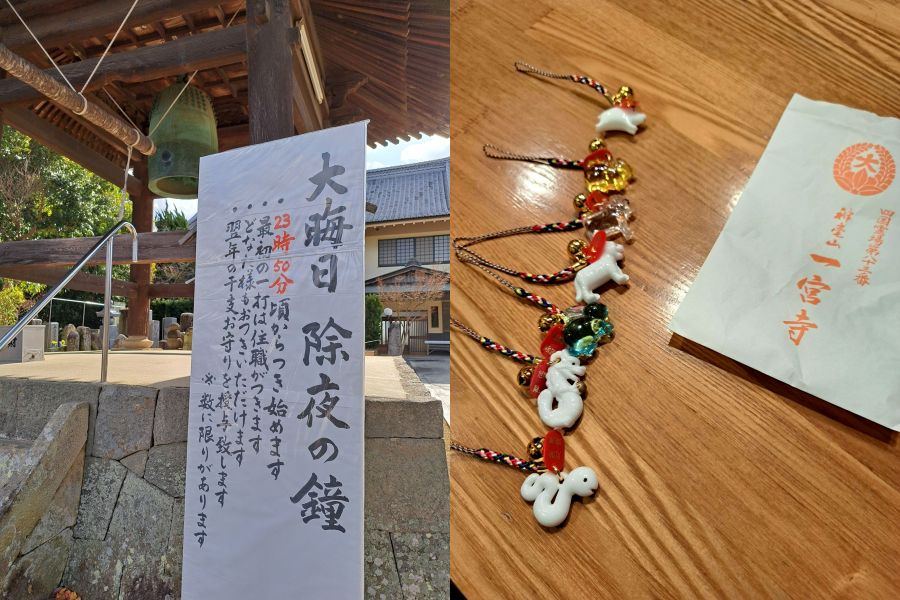 大晦日 除夜の鐘
・23時50分頃からつき始めます
・最初の一打は住職がつきます
・どなた様もおつきいただけます
・翌年の干支お守りを授与致します
※数に限りがあります
大
四国霊場第八十三番
神毫山
一宮寺